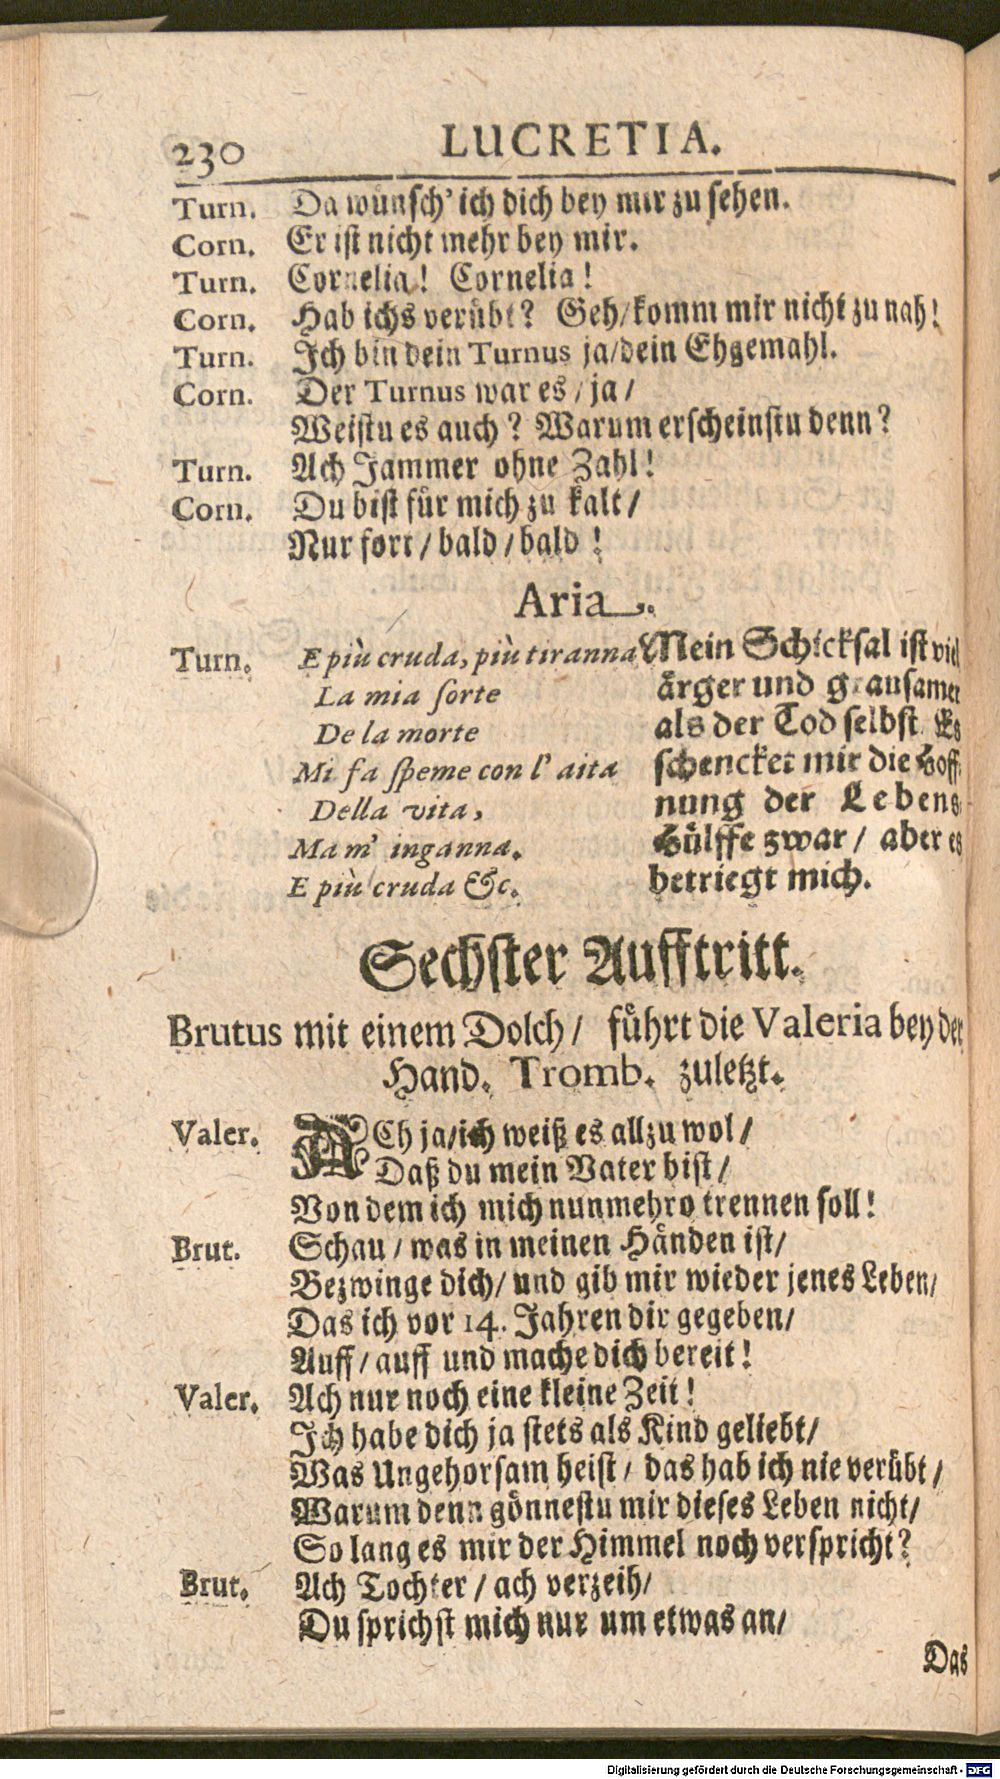 230 LUCRETIA.
Turn. Da wünsch' ich dich bey mir zu sehen.
Corn. Er ist nicht mehr bey mir.
Turn. Cornelia! Cornelia!
Corn. Hab ichs verübt? Geh/komm mir nicht zu nah!
Turn. Ich bin dein Turnus ja/dein Ehgemahl.
Corn. Der Turnus war es/ja/
Weistu es auch? Warum erscheinstu denn?
Turn. Ach Jammer ohne Zahl!
Corn. Du bist für mich zu kalt/
Nur fort/bald/bald!
Aria.
Turn. E più cruda, più tiranna
La mia sorte
De la morte
Mi fa speme con l' aita
Della vita,
Ma m' inganna.
E più cruda &c.
Mein Schicksal ist viel
ärger und grausamer
als der Tod selbst. Es
schencket mir die Hoff-
nung der Lebens-
Hülffe zwar/ aber es
betriegt mich.
Sechster Aufftritt.
Brutus mit einem Dolch/ führt die Valeria bey der
Hand. Tromb. zuletzt.
Valer. ACh ja/ich weiß es allzu wol/
Daß du mein Vater bist/
Von dem ich mich nunmehro trennen soll!
Brut. Schau/was in meinen Händen ist/
Bezwinge dich/und gib mir wieder jenes Leben/
Das ich vor 14. Jahren dir gegeben/
Auff/auff und mache dich bereit!
Valer. Ach nur noch eine kleine Zeit!
Ich habe dich ja stets als Kind geliebt/
Was Ungehorsam heist/das hab ich nie verübt/
Warum denn gönnestu mir dieses Leben nicht/
So lang es mir der Himmel noch verspricht?
Brut. Ach Tochter/ach verzeih/
Du sprichst mich nur um etwas an/
Das
Digitalisierung gefördert durch die Deutsche Forschungsgemeinschaft - DFG